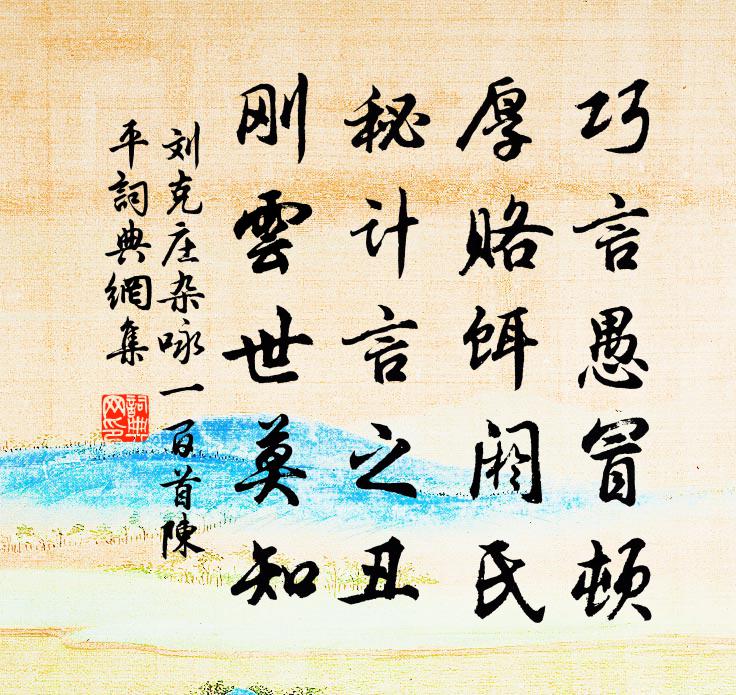 巧言愚冒顿
厚赂饵阏氏
秘计言之丑
刚雲世莫知
刘克庄杂咏一百首陳
平詞典網集
詞典網印